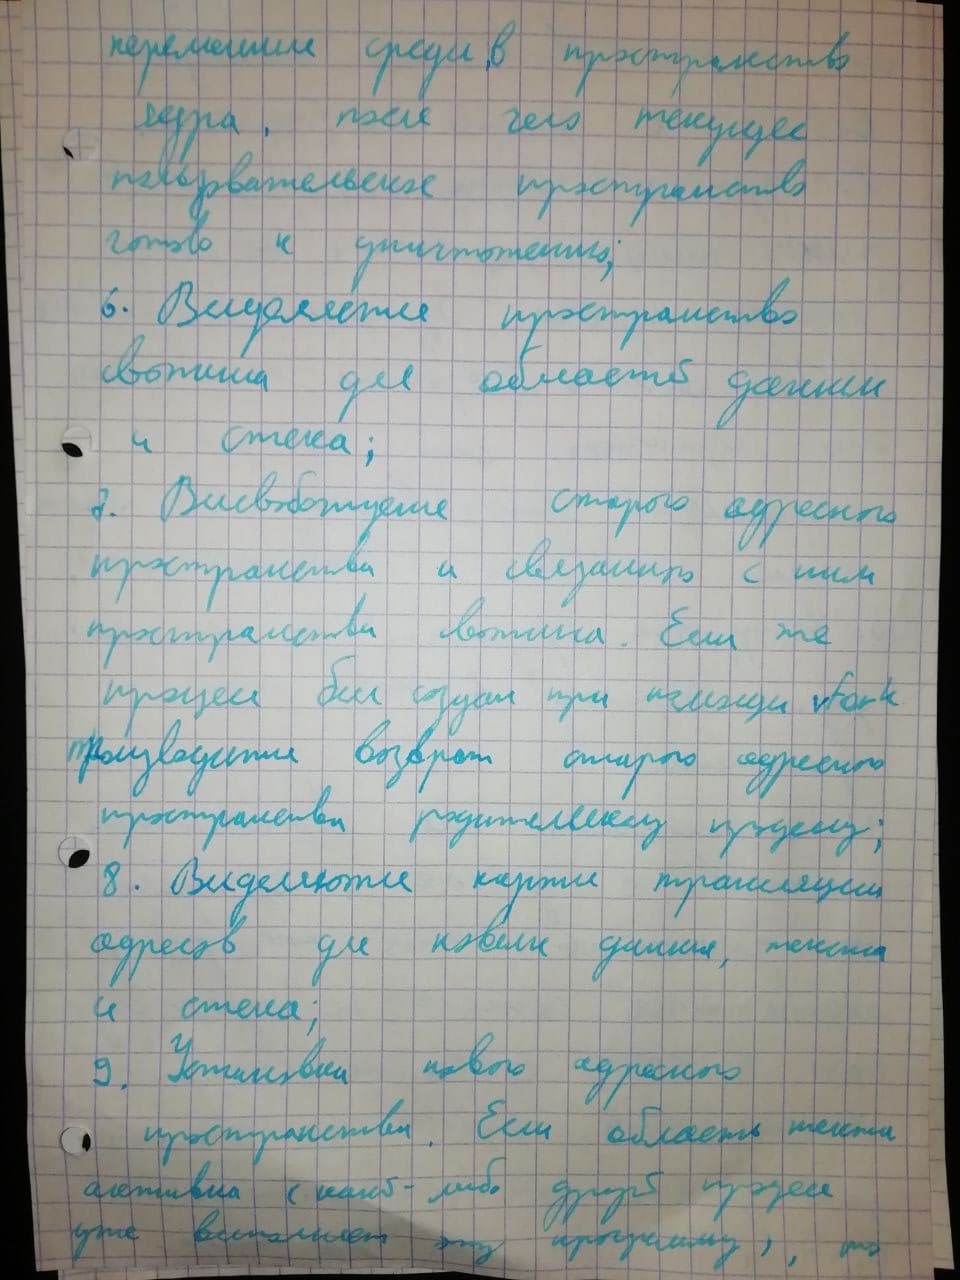 переменных среды, в пространство
ядра, после чего текущее
пользовательское пространство
готово к уничтожению;
6. Выделяется пространство
свопинга для области данных
и стека;
7. Высвобождение старого адресного
пространства и связанного с ним
пространства свопинга. Если же
процесс был создан при помощи vfork
производится возврат старого адресного
пространства родительскому процессу;
8. Выделяются карты трансляции
адресов для новых данных, текста
и стека;
9. Установка нового адресного
пространства. Если область текста
активна (какой-либо другой процесс
уже выполняет эту программу), то